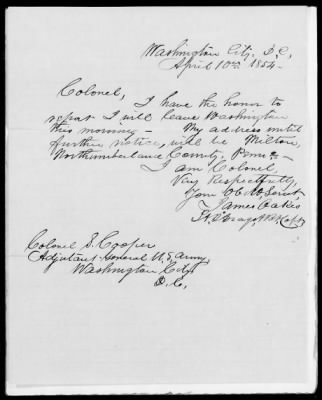 Washington City, D.C,
April 10th 1854-
Colonel,
I have the honor to
report I will leave Washington
this morning - My address until
further notice, will be Milton,
Northumberland County. Penna-
I am Colonel,
Very Respectfully,
Your Ob. Servt,
James Oakes
Colonel S. Cooper
Adjutant General U.S. Army,
Washington City
D.C,